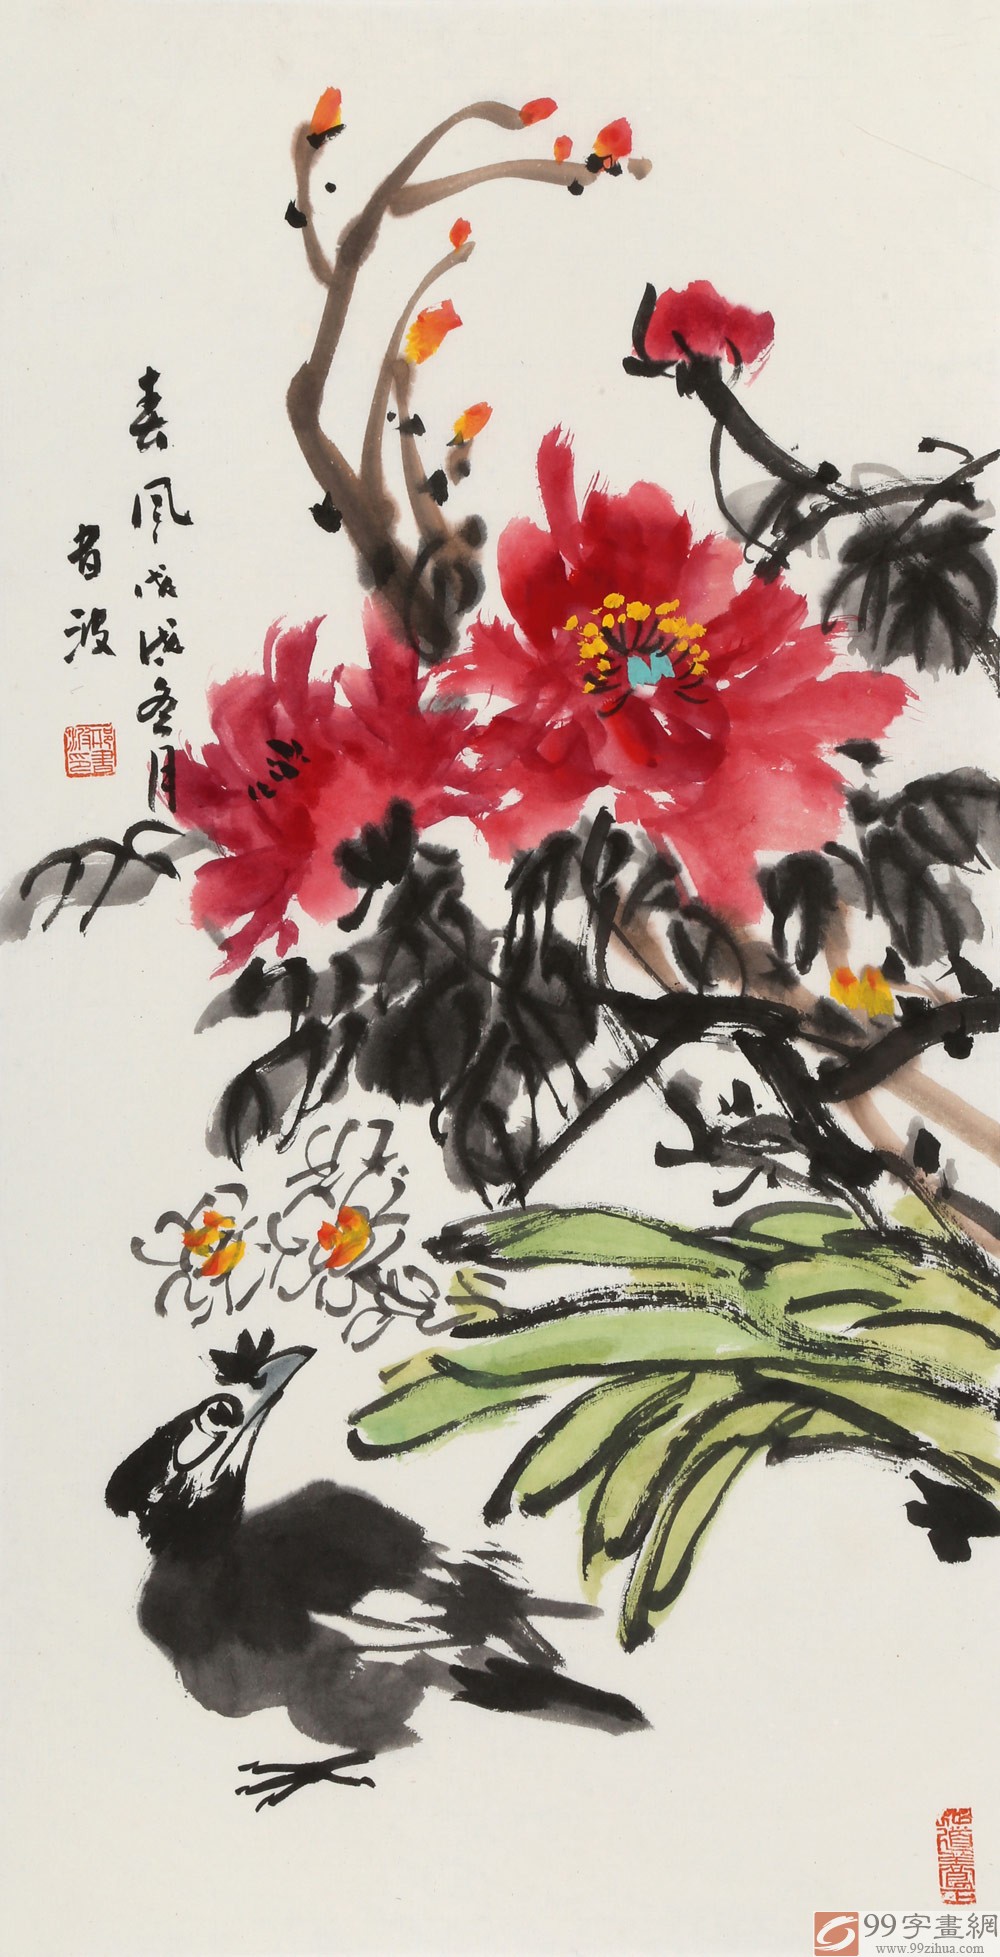 春风戊戌冬月
書波
99字畫網
www.99zihua.com